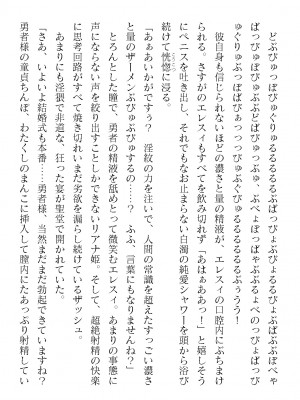 どぷびゅっぴゅぐりゅるるるるるるばっぴゅばぶぶぽべゃ
ぱっぴゅぽびゅぷぶどばびゅっぷゅ、べょぽっぱゃぷぶるょぺのっぴょぱっぴ
ゅぐりゅぶっぽっぱびぁっつっっぴゅぐるるるるぶぅうう！
　彼自身も信じられないほどの濃さと量の精液が、エレスィの口腔内にぶちまけ
られる。さすがのエレスィもすべてを飲み切れず「あはぁああっ！」と嬉しそう
にペニスを吐き出し、それでもなお止まらない白濁の純愛シャワーを頭から浴び
続けて恍惚に浸る。
「あぁあいかがですぅ？　淫紋の力を注いで、人間の常識を超えたすっごい濃さ
と量のザーメンぶびゅぶびゅするの……？　ふふ、言葉にもなりませんね？」
　とろんとした瞳で、勇者の精液を舐めとって微笑むエレスィ。あまりの事態に
声にならない声を絞り出すことしかできないリアナ姫。そして、超絶射精の快楽
に思考回路がすべて焼ききれまだ劣欲を漏らし続けているザッシュ。
　あまりにも淫猥で非道な、狂った宴が聖堂で開かれていた。
「さあ、いよいよ結婚式も本番……勇者様、当然まだまだ勃起できていますね？
勇者様の童貞ちんぽ、わたくしのまんこに挿入して膣内にたっぷり射精してい